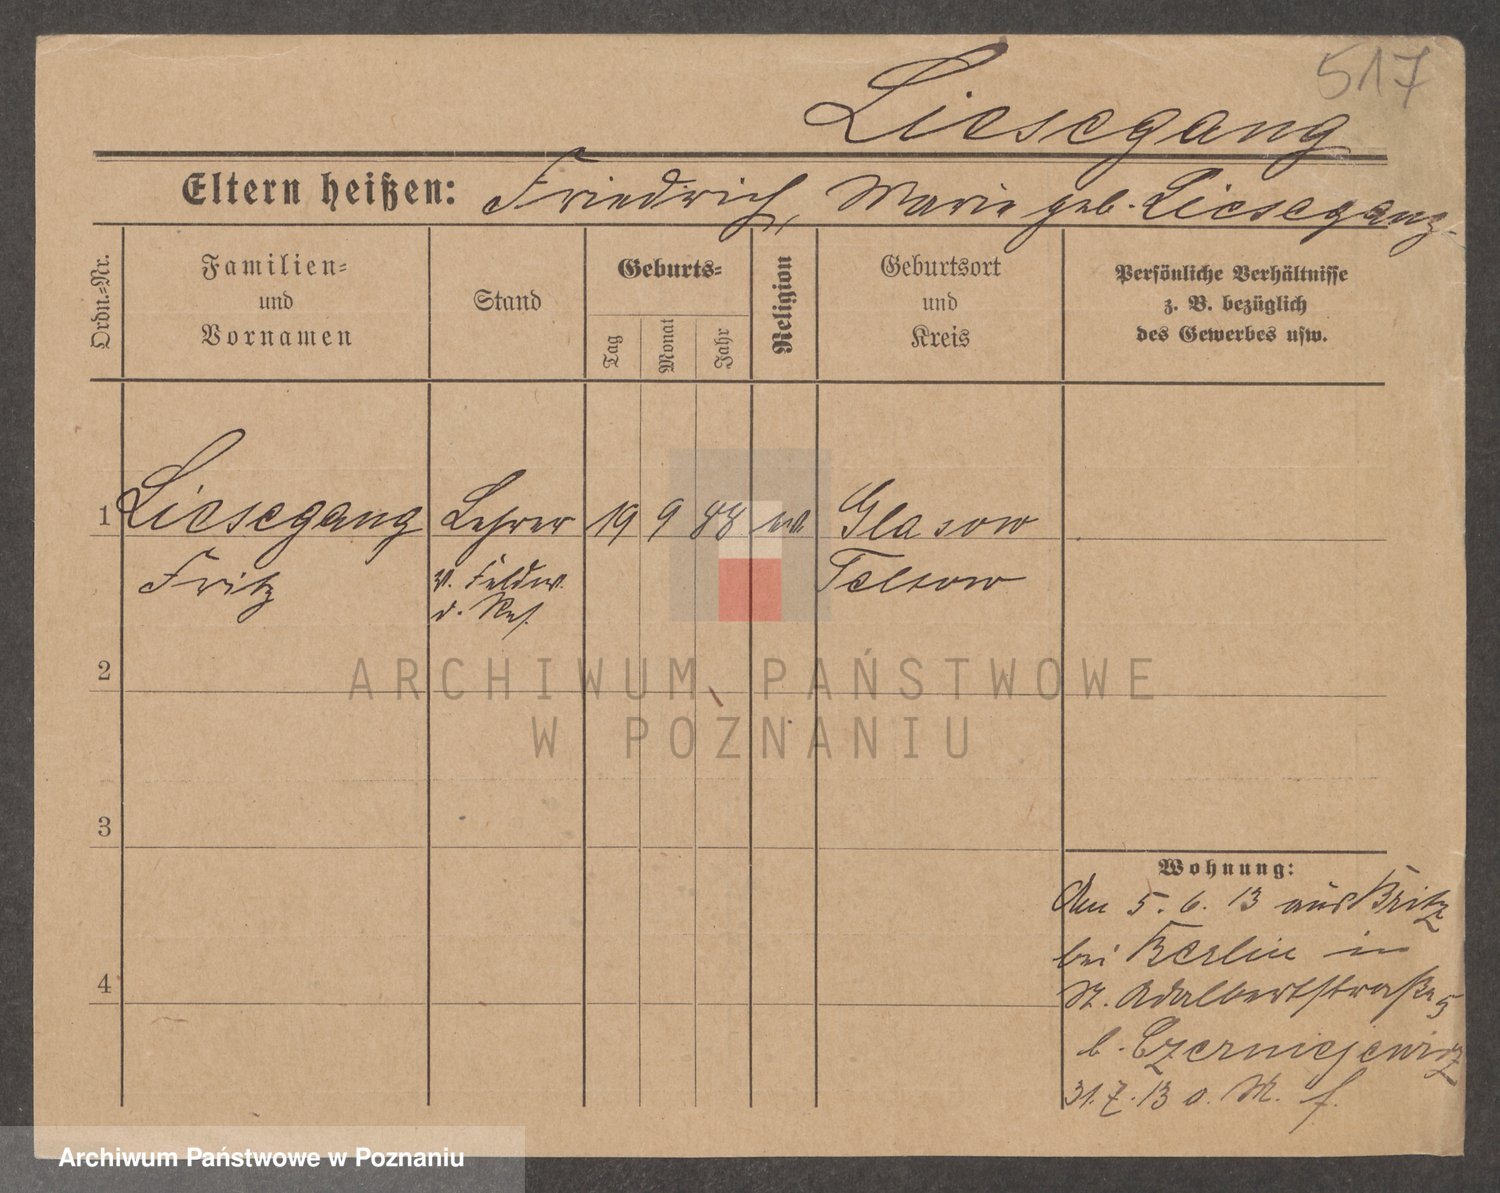 517
Liesegang
Eltern heißen: Friedrich, Marie geb. Liesegang
Ordn.-Nr.
Familien-
und
Vornamen
Stand
Geburts-
Tag
Monat
Jahr
Religion
Geburtsort
und
Kreis
Persönliche Verhältnisse
z. B. bezüglich
des Gewerbes usw.
1 Liesegang Lehrer 19 9 88 ev Glasow
Fritz v. Feldw. Teltow
d. Res.
2
ARCHIWUM PAŃSTWOWE
W POZNANIU
3
Wohnung:
Am 5. 6. 13 aus Britz
bei Berlin in
St. Adalbertstraße 5
b. Czerniejewicz
4
31. 7. 13 o. M. f.
Archiwum Państwowe w Poznaniu